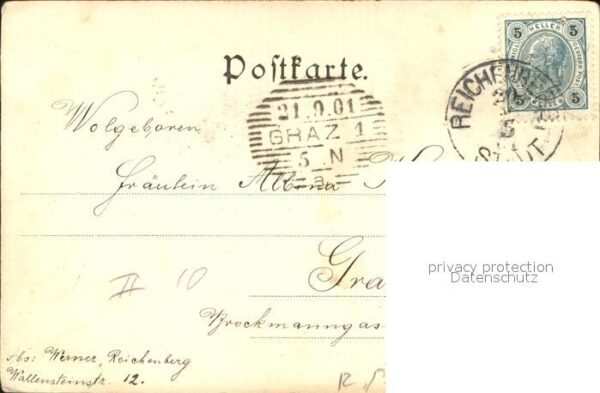 5 HELLER 5
5 5
Postkarte.
REICHENBERG
STADT
21.9.01
GRAZ 1
5 N
a
Wolgeboren
Fräulein Albina
Gra
Brockmanngas
II 10
Abs: Werner, Reichenberg
Wallensteinstr. 12.
privacy protection
Datenschutz